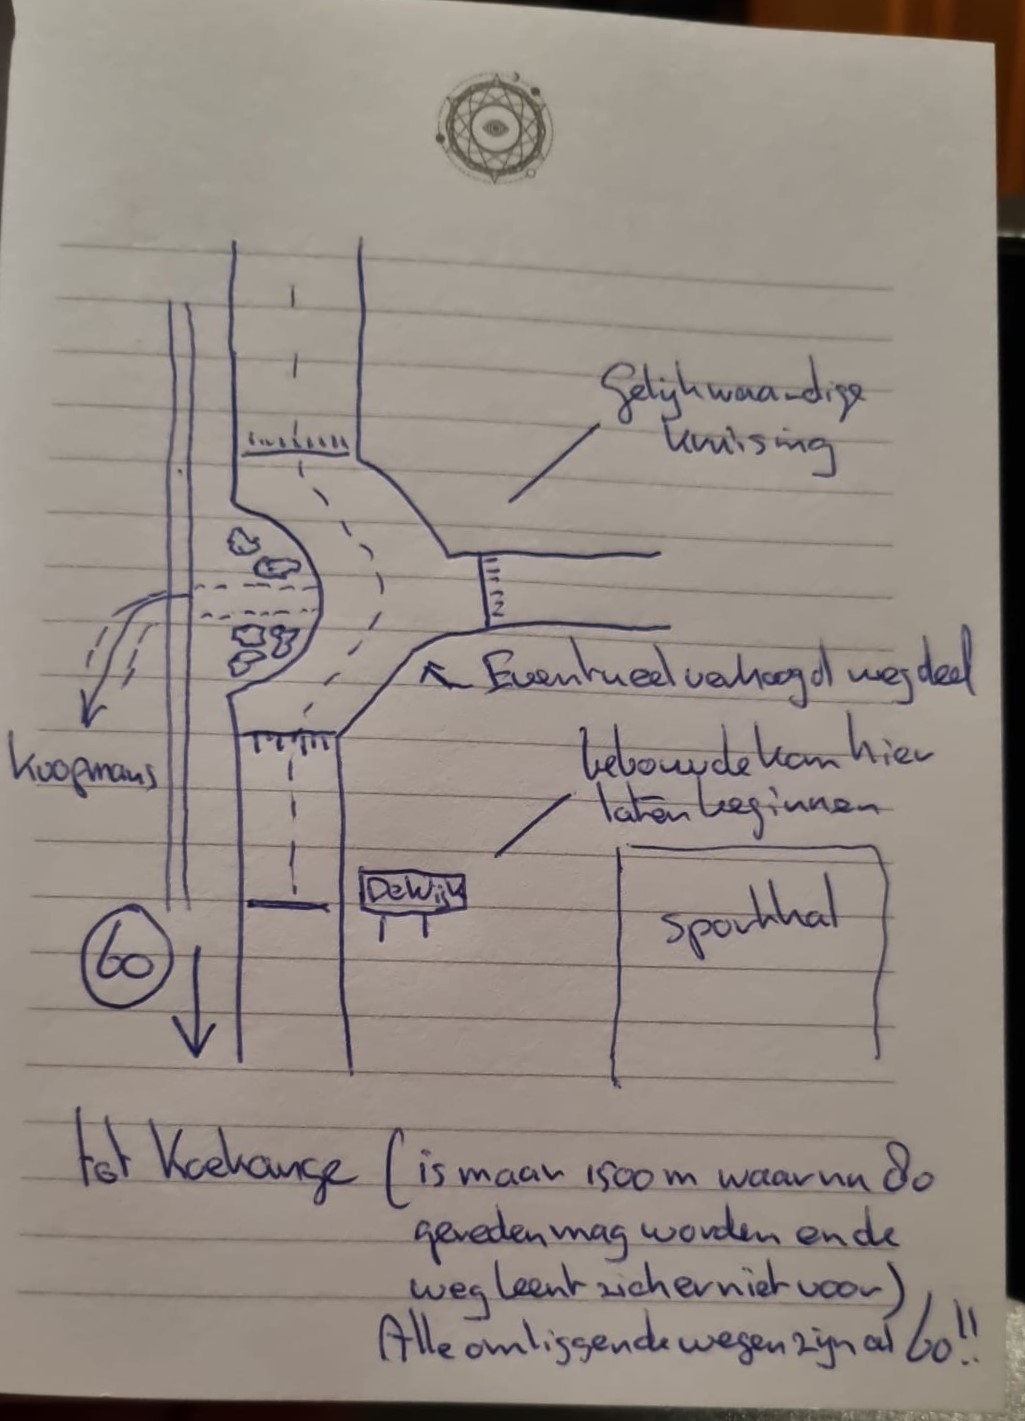 Gelijkwaardige
kruising
Eventrueel verhoogd wegdeel
Koopmans
bebouwde kom hier
laten beginnen
De Wijk
sporthal
60
tot Koekange (is maar 1500 m waar nu 80
gereden mag worden en de
weg leent zich er niet voor)
Alle omliggende wegen zijn al 60!!